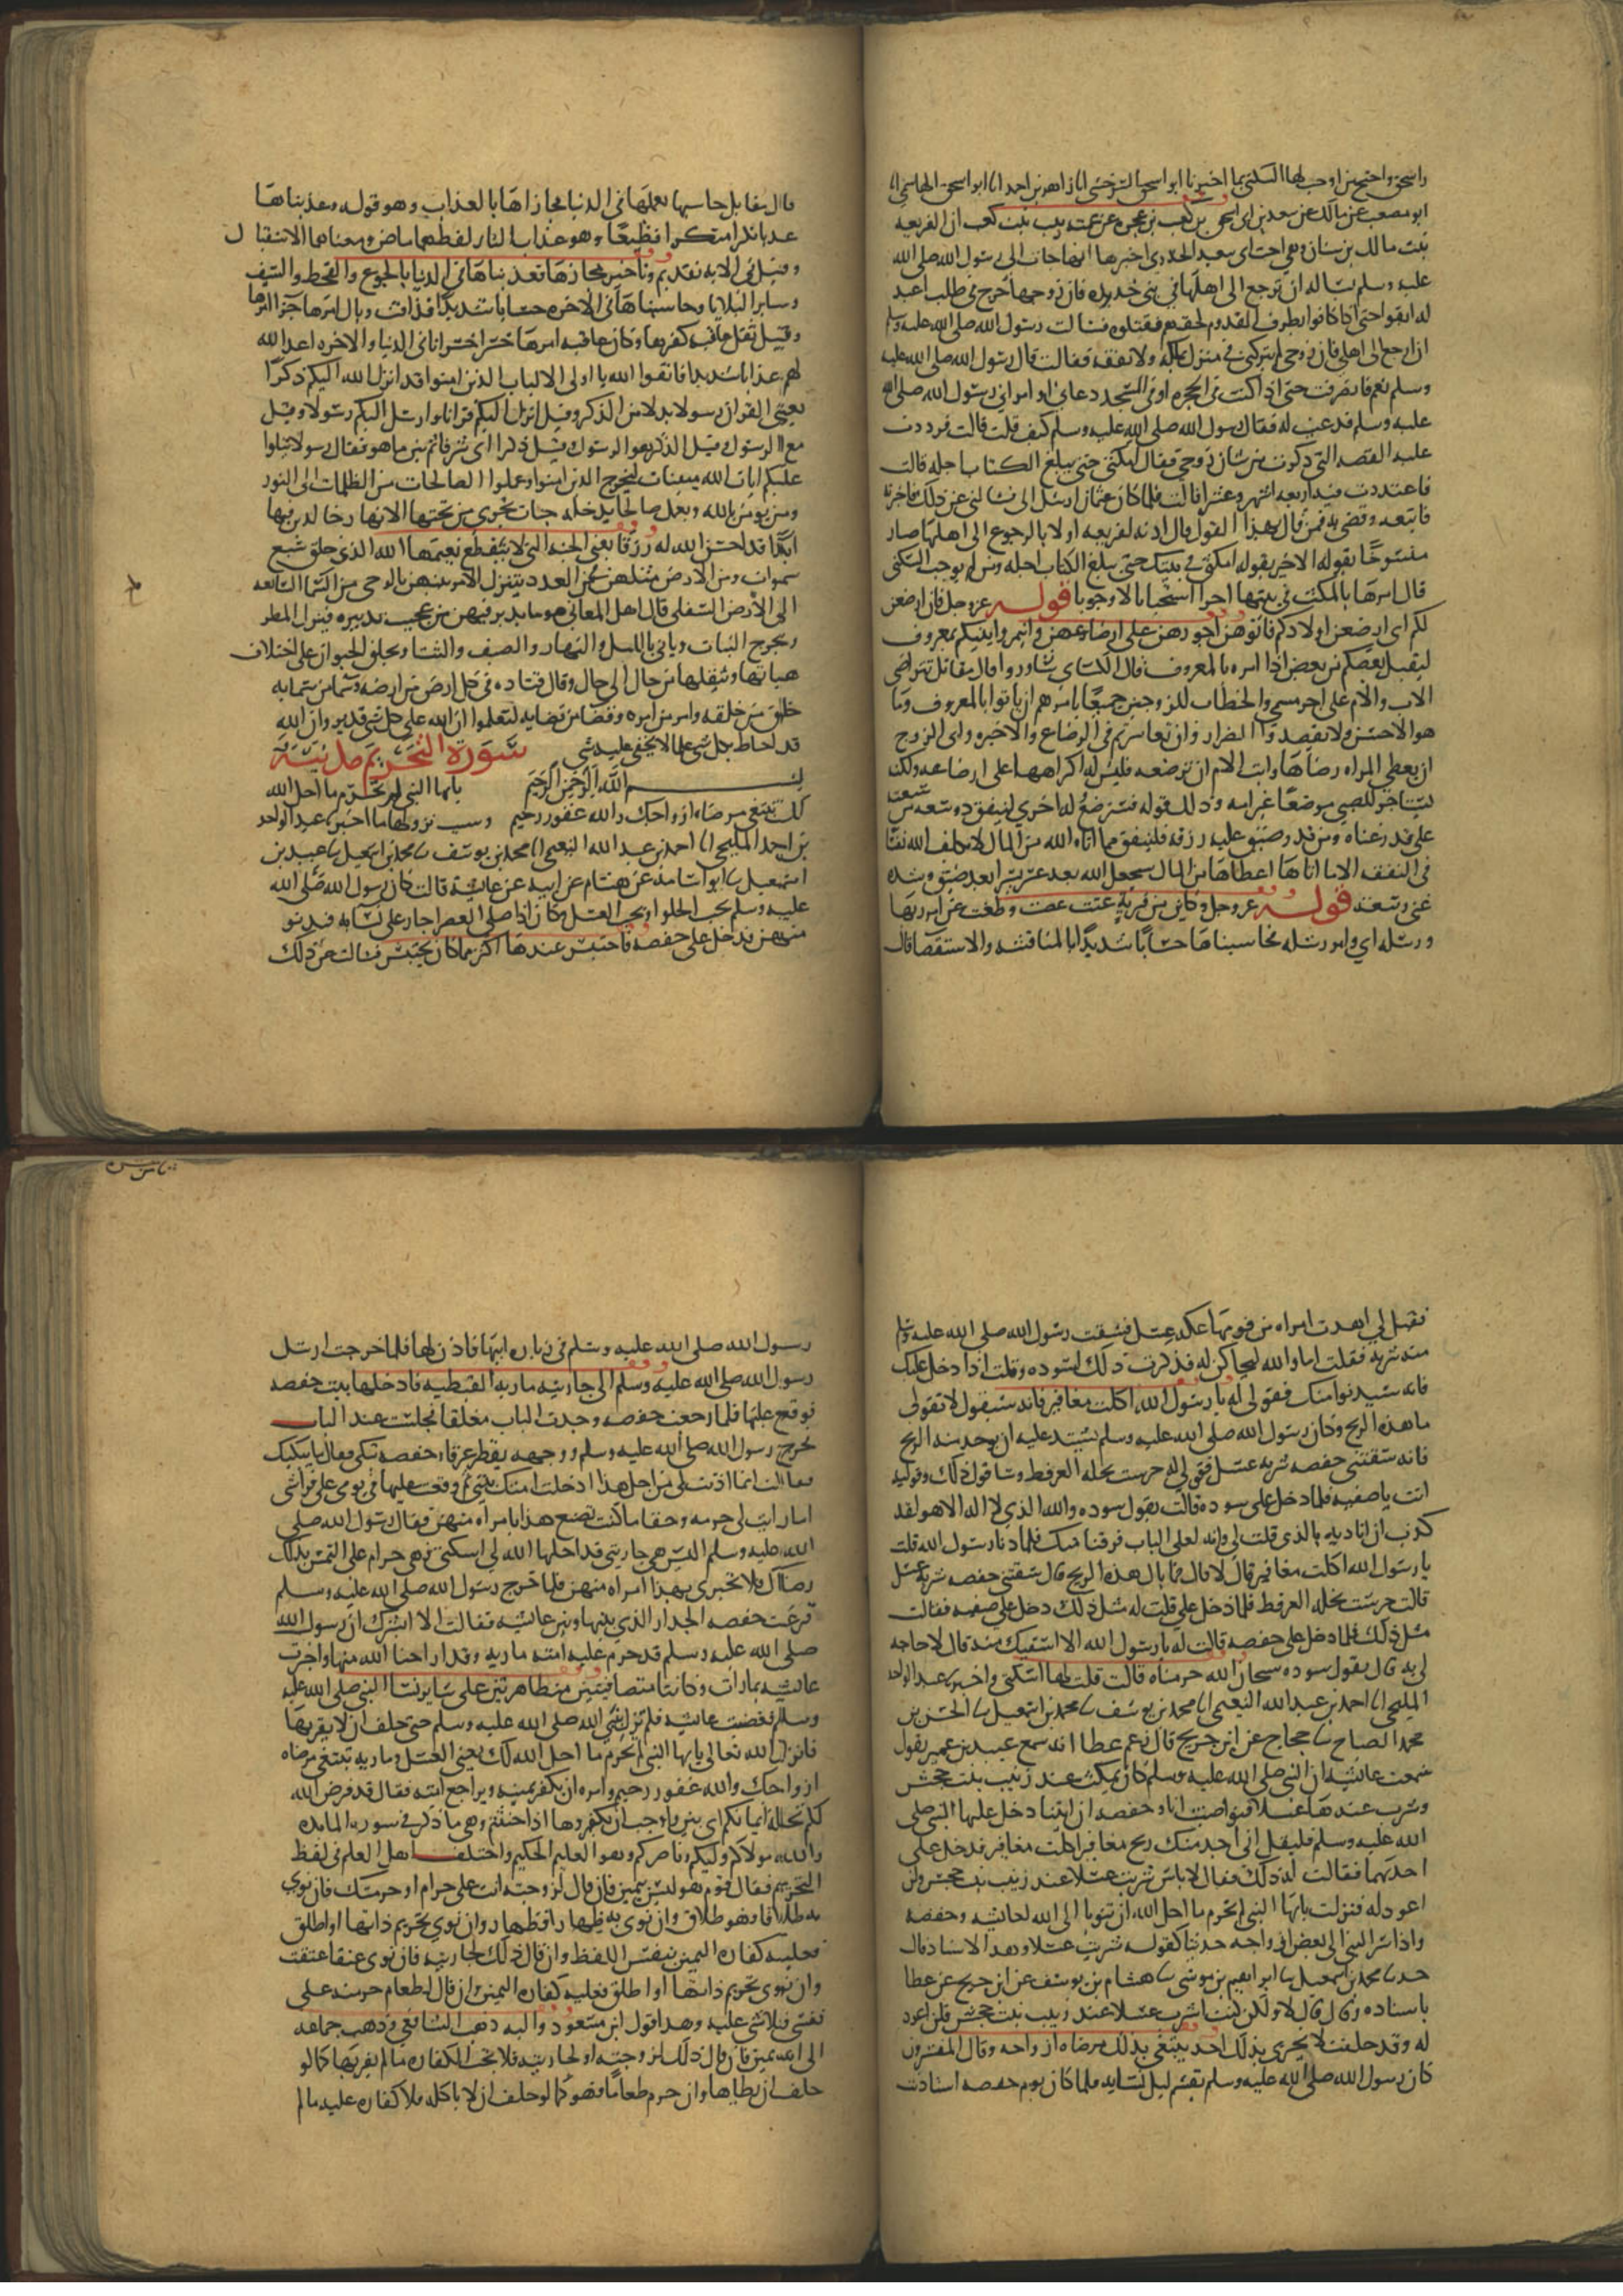 واسحق واحتج من اوجب لها السكنى بما اخبرنا ابو اسحق السرخسي انا زاهر بن احمد انا ابو اسحق الهاشمي انا
ابو مصعب عن مالك عن سعد بن اسحق بن كعب بن عجره عن عمته زينب بنت كعب ان الفريعه
بنت مالك بن سنان وهي اخت ابي سعيد الخدري اخبرتها انها جات الى رسول الله صلى الله
عليه وسلم تساله ان ترجع الى اهلها في بني خدره فان زوجها خرج في طلب اعبد
له ابقوا حتى اذا كانوا بطرف القدوم لحقهم فقتلوه فسالت رسول الله صلى الله عليه وسلم
ان ارجع الى اهلي فان زوجي لم يتركني في منزل يملكه ولا نفقه فقالت قال رسول الله صلى الله عليه
وسلم نعم فانصرفت حتى اذا كنت في الحجره او في المسجد دعاني او امر بي رسول الله صلى الله
عليه وسلم فدعيت له فقال رسول الله صلى الله عليه وسلم كيف قلت قالت فرددت
عليه القصه التي ذكرت من شان زوجي فقال امكثي حتى يبلغ الكتاب اجله قالت
فاعتددت فيه اربعه اشهر وعشرا قالت فلما كان عثمان ارسل الى فسالني عن ذلك فاخبرته
فاتبعه وقضى به فمن قال بهذا القول قال اذنه لفريعه اولا بالرجوع الى اهلها صار
منسوخا بقوله الاخر بقوله امكثي في بيتك حتى يبلغ الكتاب اجله ومن لم يوجب السكنى
قال امرها بالمكث في بيتها اخرا استحبابا لا وجوبا قوله عز وجل فان ارضعن
لكم اي ارضعن اولادكم فاتوهن اجورهن على ارضاعهن واتمروا بينكم بمعروف
ليقبل بعضكم من بعض اذا امره بالمعروف قال الكساي شاوروا قال مقاتل بتراضي
الاب والام على اجر مسمى والخطاب للزوجين جميعا يامرهم ان ياتوا بالمعروف وما
هو الاحسن ولا يقصدوا الضرار وان تعاسرتم في الرضاع والاجره وابى الزوج
ان يعطي المراه رضاها وابت الام ان ترضعه فليس له اكراهها على ارضاعه ولكنه
يستاجر للصبي مرضعا غير امه وذلك قوله فسترضع له اخرى لينفق ذو سعه من سعته
على قدر غناه ومن قدر عليه رزقه فلينفق مما اتاه الله من المال لا يكلف الله نفسا
في النفقه الا ما اتاها اعطاها من المال سيجعل الله بعد عسر يسرا بعد ضيق وشده
غنى وسعه قوله عز وجل وكاين من قريه عتت عصت وطغت عن امر ربها
ورسله اي وامر رسله فحاسبناها حسابا شديدا بالمناقشه والاستقصا قال
قال مقاتل حاسبها بعملها في الدنيا فجازاها بالعذاب وهو قوله وعذبناها
عذابا نكرا منكرا فظيعا وهو عذاب النار لفظهما ماض ومعناهما الاستقبال
وقيل في الايه تقديم وتاخير مجازها فعذبناها في الدنيا بالجوع والقحط والسيف
وساير البلايا وحاسبناها في الاخره حسابا شديدا فذاقت وبال امرها جزا امرها
وقيل ثقل عاقبه كفرها وكان عاقبه امرها خسرا خسرانا في الدنيا والاخره اعد الله
لهم عذابا شديدا فاتقوا الله يا اولي الالباب الذين امنوا قد انزل الله اليكم ذكرا
يعني القران رسولا بدلا من الذكر وقيل انزل اليكم قرانا وارسل اليكم رسولا وقيل
مع الرسول وقيل الذكر هو الرسول وقيل ذكرا اي شرفا ثم بين ما هو فقال رسولا يتلوا
عليكم ايات الله مبينات ليخرج الذين امنوا وعملوا الصالحات من الظلمات الى النور
ومن يومن بالله ويعمل صالحا يدخله جنات تجري من تحتها الانهار خالدين فيها
ابدا قد احسن الله له رزقا يعني الجنه التي لا ينقطع نعيمها الله الذي خلق سبع
سموات ومن الارض مثلهن في العدد يتنزل الامر بينهن بالوحي من السما السابعه
الى الارض السفلى قال اهل المعاني هو ما يدبر فيهن من عجيب تدبيره فينزل المطر
ويخرج النبات وياتي بالليل والنهار والصيف والشتا ويخلق الحيوان على اختلاف
هياتها وينقلها من حال الى حال وقال قتاده في كل ارض من ارضه وسما من سمايه
خلق من خلقه وامر من امره وقضا من قضايه لتعلموا ان الله على كل شي قدير وان الله
قد احاط بكل شي علما لا يخفى عليه شي سورة التحريم مدنية
بسم الله الرحمن الرحيم يايها النبي لم تحرم ما احل الله
لك تبتغي مرضاه ازواجك والله غفور رحيم وسبب نزولها ما اخبرنا عبد الواحد
بن احمد المليحي انا احمد بن عبد الله النعيمي انا محمد بن يوسف ثنا محمد بن اسمعيل ثنا عبيد بن
اسمعيل ثنا ابو اسامه عن هشام عن ابيه عن عائشة قالت كان رسول الله صلى الله
عليه وسلم يحب الحلوا ويحب العسل وكان اذا صلى العصر اجاز على نسايه فيدنو
منهن فدخل على حفصه فاحتبس عندها اكثر مما كان يحتبس فسالت عن ذلك
فقيل لي اهدت امراه من قومها عكه عسل فسقت رسول الله صلى الله عليه وسلم
منه شربه فقلت اما والله لنحتالن له فذكرت ذلك لسوده وقلت اذا دخل عليك
فانه سيدنو منك فقولي له يا رسول الله اكلت مغافير فانه سيقول لا فقولي
ما هذه الريح وكان رسول الله صلى الله عليه وسلم يشتد عليه ان يوجد منه الريح
فانه سيقول سقتني حفصه شربه عسل فقولي له جرست نحله العرفط وساقول ذلك وقوليه
انت يا صفيه فلما دخل على سوده قالت تقول سوده والله الذي لا اله الا هو لقد
كدت ان اناديه بالذي قلت لي وانه لعلى الباب فرقا منك فلما دنا رسول الله قلت
يا رسول الله اكلت مغافير قال لا قال فما بال هذه الريح قال سقتني حفصه شربه عسل
قالت جرست نحله العرفط فلما دخل علي قلت له مثل ذلك دخل على صفيه فقالت
مثل ذلك فلما دخل على حفصه قالت له يا رسول الله الا اسقيك منه قال لا حاجه
لي به قال تقول سوده سبحان الله حرمناه قالت قلت لها اسكتي واخبرنا عبد الواحد
المليحي انا احمد بن عبد الله النعيمي انا محمد بن يوسف ثنا محمد بن اسمعيل ثنا الحسن بن
محمد الصباح ثنا حجاج عن ابن جريج قال زعم عطا انه سمع عبيد بن عمير يقول
سمعت عائشه ان النبي صلى الله عليه وسلم كان يمكث عند زينب بنت جحش
وشرب عندها عسلا فتواصيت انا وحفصه ان ايتنا دخل عليها النبي صلى
الله عليه وسلم فلتقل اني اجد منك ريح مغافير اكلت مغافير فدخل على
احديهما فقالت له ذلك فقال لا باس شربت عسلا عند زينب بنت جحش ولن
اعود له فنزلت يايها النبي لم تحرم ما احل الله ان تتوبا الى الله لعائشه وحفصه
واذ اسر النبي الى بعض ازواجه حديثا كقوله شربت عسلا وبهذا الاسناد قال
حدثنا محمد بن اسمعيل ثنا ابراهيم بن موسى ثنا هشام بن يوسف عن ابن جريج عن عطا
باسناده وقال قال لا ولكن كنت اشرب عسلا عند زينب بنت جحش فلن اعود
له وقد حلفت لا تخبري بذلك احد يبتغي بذلك مرضاه ازواجه وقال المفسرون
كان رسول الله صلى الله عليه وسلم يقسم بين نسايه فلما كان يوم حفصه استاذنت
رسول الله صلى الله عليه وسلم في زياره ابيها فاذن لها فلما خرجت ارسل
رسول الله صلى الله عليه وسلم الى جاريته ماريه القبطيه فادخلها بيت حفصه
فوقع عليها فلما رجعت حفصه وجدت الباب مغلقا فجلست عند الباب
فخرج رسول الله صلى الله عليه وسلم ووجهه يقطر عرقا وحفصه تبكي فقال ما يبكيك
فقالت انما اذنت لي من اجل هذا ادخلت امتك بيتي ثم وقعت عليها في يومي على فراشي
اما رايت لي حرمه وحقا ما كنت تصنع هذا بامراه منهن فقال رسول الله صلى
الله عليه وسلم اليس هي جاريتي قد احلها الله لي اسكتي فهي حرام علي التمس بذلك
رضاك فلا تخبري بهذا امراه منهن فلما خرج رسول الله صلى الله عليه وسلم
قرعت حفصه الجدار الذي بينها وبين عائشه فقالت الا ابشرك ان رسول الله
صلى الله عليه وسلم قد حرم عليه امته ماريه وقد اراحنا الله منها واخبرت
عائشه بما رات وكانتا متصافيتين متظاهرتين على ساير نسا النبي صلى الله عليه
وسلم فغضبت عائشه فلم تزل بنبي الله صلى الله عليه وسلم حتى حلف ان لا يقربها
فانزل الله تعالى يايها النبي لم تحرم ما احل الله لك يعني العسل وماريه تبتغي مرضاه
ازواجك والله غفور رحيم وامره ان يكفر يمينه ويراجع امته فقال قد فرض الله
لكم تحلة ايمانكم اي بين واوجب ان تكفروها اذا حنثتم وهي ما ذكر في سوره المايده
والله مولاكم وليكم وناصركم وهو العليم الحكيم واختلف اهل العلم في لفظ
التحريم فقال قوم هو ليس بيمين فان قال لزوجته انت علي حرام او حرمتك فان نوى
به طلاقا فهو طلاق وان نوى به ظهارا فظهار وان نوى تحريم ذاتها او اطلق
فعليه كفاره اليمين بنفس اللفظ وان قال ذلك لجاريته فان نوى عتقا عتقت
وان نوى تحريم ذاتها او اطلق فعليه كفاره اليمين وان قال لطعام حرمته على
نفسي فلا شي عليه وهذا قول ابن مسعود واليه ذهب الشافعي وذهب جماعه
الى انه يمين فان قال ذلك لزوجته او لجاريته فلا تجب الكفاره ما لم يقربها كما لو
حلف ان لا يطاها وان حرم طعاما فهو كما لو حلف ان لا ياكله فلا كفاره عليه ما لم